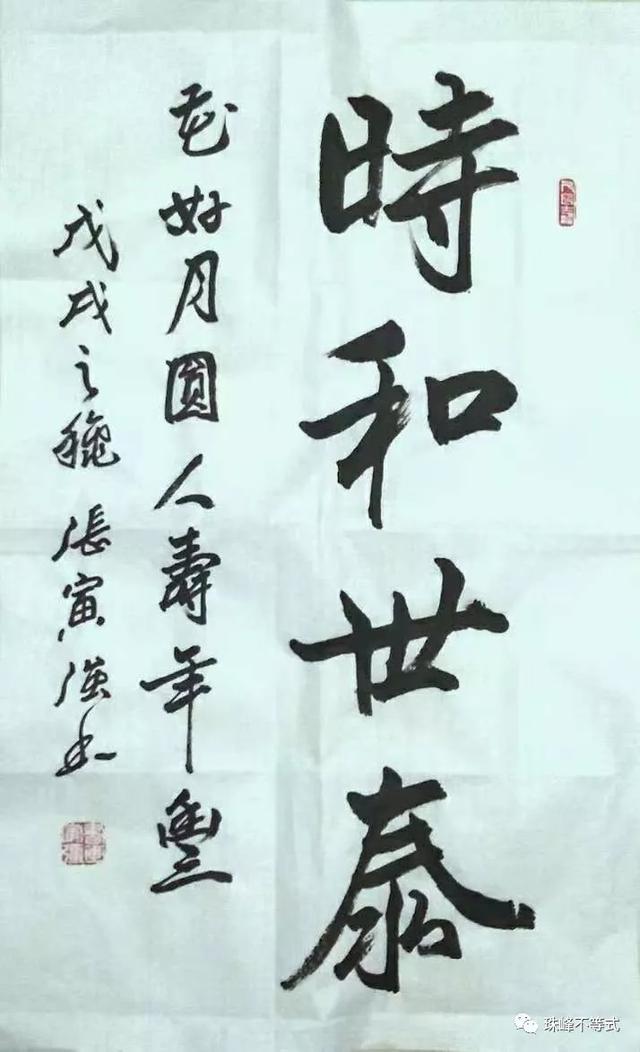 時和世泰
花好月圓人壽年豐
戊戌之穐 張寅强书
珠峰不等式